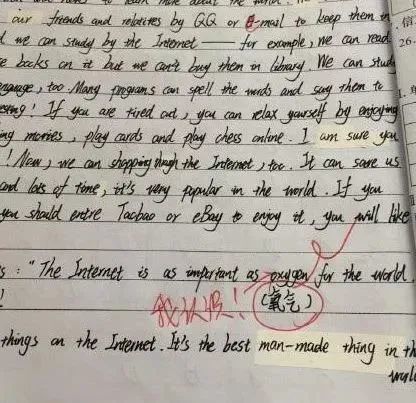 our friends and relatives by QQ or E-mail to keep them in
d we can study by the Internet — for example, we can read
e books on it but we can't buy them in library. We can stud
anguage, too. Many programs can spell the words and say them to
esting! If you are tired out, you can relax yourself by enjoying
ing movies, play cards and play chess online. I am sure you
! Now, we can shopping through the Internet, too. It can save us
and lots of time, it's very popular in the world. If you
you should entire Taobao or eBay to enjoy it, you will like
s: "The Internet is as important as oxygen for the world.
(氧气)
things on the Internet. It's the best man-made thing in th
world